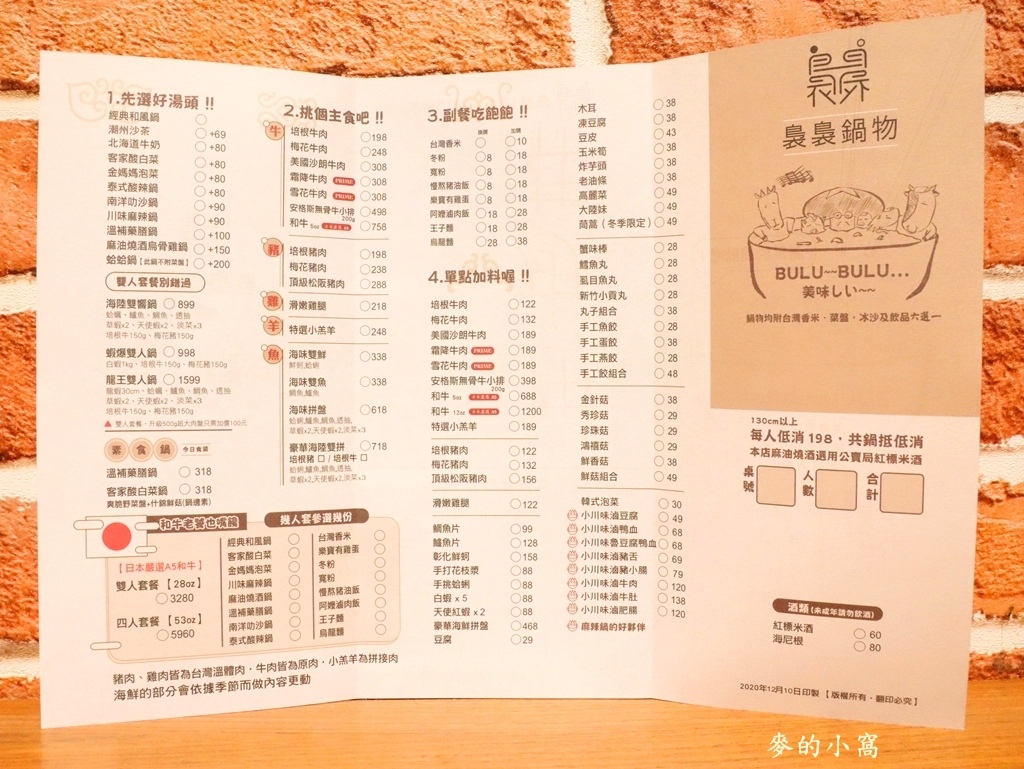 1.先選好湯頭 !!
經典和風鍋
潮州沙茶 +69
北海道牛奶 +80
客家酸白菜 +80
金媽媽泡菜 +80
泰式酸辣鍋 +80
南洋叻沙鍋 +90
川味麻辣鍋 +90
溫補藥膳鍋 +100
麻油燒酒烏骨雞鍋 +150
蛤蛤鍋【此鍋不附菜盤】 +200
雙人套餐別錯過
海陸雙響鍋 899
蛤蠣、鱸魚、鯛魚、透抽
草蝦x2、天使蝦x2、淡菜x3
培根牛150g、梅花豬150g
蝦爆雙人鍋 998
白蝦1kg、培根牛150g、梅花豬150g
龍王雙人鍋 1599
龍蝦30cm、蛤蠣、鱸魚、鯛魚、透抽
草蝦x2、天使蝦x2、淡菜x3
培根牛150g、梅花豬150g
▲ 雙人套餐,升級500g超大肉盤只需加價100元
素食鍋 今日食菜
溫補藥膳鍋 318
客家酸白菜鍋 318
爽脆野菜盤+什錦鮮菇(鍋邊素)
2.挑個主食吧 !!
牛
培根牛肉 198
梅花牛肉 248
美國沙朗牛肉 308
霜降牛肉 PRIME 308
雪花牛肉 PRIME 308
安格斯無骨牛小排 200g 498
和牛 5oz 758
豬
培根豬肉 198
梅花豬肉 238
頂級松阪豬肉 288
雞
滑嫩雞腿 218
羊
特選小羔羊 248
魚
海味雙鮮 338
鮮蚵,蛤蜊
海味雙魚 338
鯛魚,鱸魚
海味拼盤 618
蛤蜊,鱸魚,鯛魚,透抽,
草蝦x2,天使蝦x2,淡菜x3
豪華海陸雙拼 718
培根豬 □ / 培根牛 □
蛤蜊,鱸魚,鯛魚,透抽,
草蝦x2,天使蝦x2,淡菜x3
3.副餐吃飽飽 !!
換購 加購
台灣香米 10
冬粉 8 18
寬粉 8 18
慢熬豬油飯 8 18
樂寶有雞蛋 8 18
阿嬤滷肉飯 18 28
王子麵 8 18
烏龍麵 28 38
4.單點加料喔 !!
培根牛肉 122
梅花牛肉 132
美國沙朗牛肉 189
霜降牛肉 PRIME 189
雪花牛肉 PRIME 189
安格斯無骨牛小排 200g 398
和牛 5oz 688
和牛 12oz 1200
特選小羔羊 189
培根豬肉 122
梅花豬肉 132
頂級松阪豬肉 156
滑嫩雞腿 122
鯛魚片 99
鱸魚片 128
彰化鮮蚵 158
手打花枝漿 88
手挑蛤蜊 88
白蝦 x 5 88
天使紅蝦 x 2 88
豪華海鮮拼盤 468
豆腐 29
木耳 38
凍豆腐 38
豆皮 43
玉米筍 38
炸芋頭 38
老油條 38
高麗菜 49
大陸妹 49
茼蒿(冬季限定) 49
蟹味棒 28
鱈魚丸 28
虱目魚丸 28
新竹小貢丸 28
丸子組合 38
手工魚餃 28
手工蛋餃 38
手工燕餃 28
手工餃組合 48
金針菇 38
秀珍菇 29
珍珠菇 29
鴻禧菇 29
鮮香菇 38
鮮菇組合 49
韓式泡菜 30
小川味滷豆腐 49
小川味滷鴨血 68
小川味滷豆腐鴨血 68
小川味滷豬舌 69
小川味滷豬小腸 79
小川味滷牛肉 120
小川味滷牛肚 138
小川味滷肥腸 120
麻辣鍋的好夥伴
和牛老饕也嘴饞
【日本嚴選A5和牛】
雙人套餐【28oz】
3280
四人套餐【53oz】
5960
幾人套餐選幾份
經典和風鍋
客家酸白菜
金媽媽泡菜
川味麻辣鍋
麻油燒酒鍋
溫補藥膳鍋
南洋叻沙鍋
泰式酸辣鍋
台灣香米
樂寶有雞蛋
冬粉
寬粉
慢熬豬油飯
阿嬤滷肉飯
王子麵
烏龍麵
豬肉、雞肉皆為台灣溫體肉,牛肉皆為原肉,小羔羊為拼接肉
海鮮的部分會依據季節而做內容更動
裊裊鍋物
BULU~~BULU...
美味しい~~
鍋物均附台灣香米、菜盤、冰沙及飲品六選一
130cm以上
每人低消 198,共鍋抵低消
本店麻油燒酒選用公賣局紅標米酒
桌號 人數 合計
酒類 (未成年請勿飲酒)
紅標米酒 60
海尼根 80
2020年12月10日印製【版權所有,翻印必究】
麥的小窩